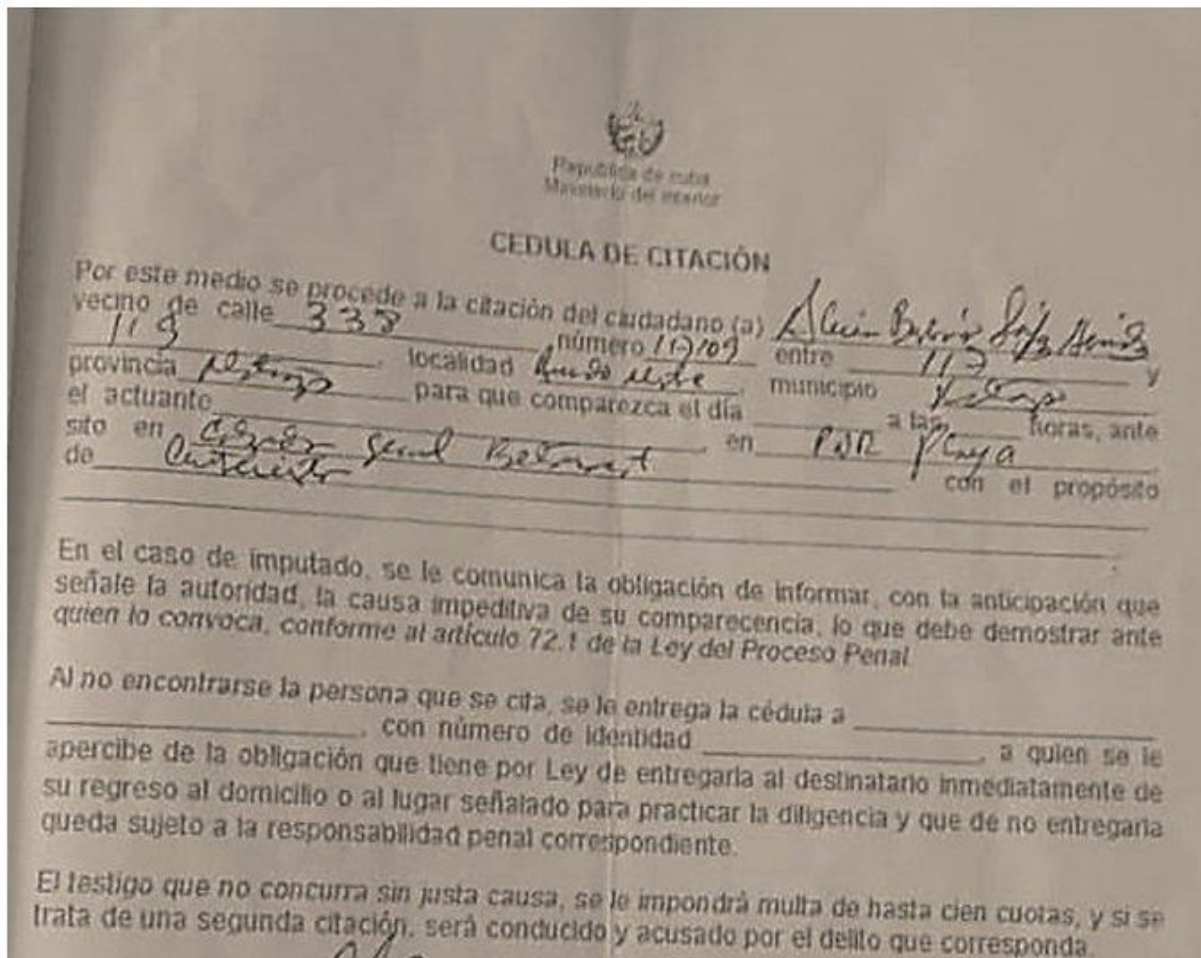 Republica de cuba
Ministerio del interior
CEDULA DE CITACIÓN
Por este medio se procede a la citación del ciudadano (a)
vecino de calle 338 número entre 117 y
119, localidad municipio
provincia para que comparezca el día a las horas, ante
el actuante en PNR Playa
sito en con el propósito
de
En el caso de imputado, se le comunica la obligación de informar, con la anticipación que
señale la autoridad, la causa impeditiva de su comparecencia, lo que debe demostrar ante
quien lo convoca, conforme al artículo 72.1 de la Ley del Proceso Penal
Al no encontrarse la persona que se cita, se le entrega la cédula a
, con número de identidad , a quien se le
apercibe de la obligación que tiene por Ley de entregarla al destinatario inmediatamente de
su regreso al domicilio o al lugar señalado para practicar la diligencia y que de no entregarla
queda sujeto a la responsabilidad penal correspondiente.
El testigo que no concurra sin justa causa, se le impondrá multa de hasta cien cuotas, y si se
trata de una segunda citación, será conducido y acusado por el delito que corresponda.